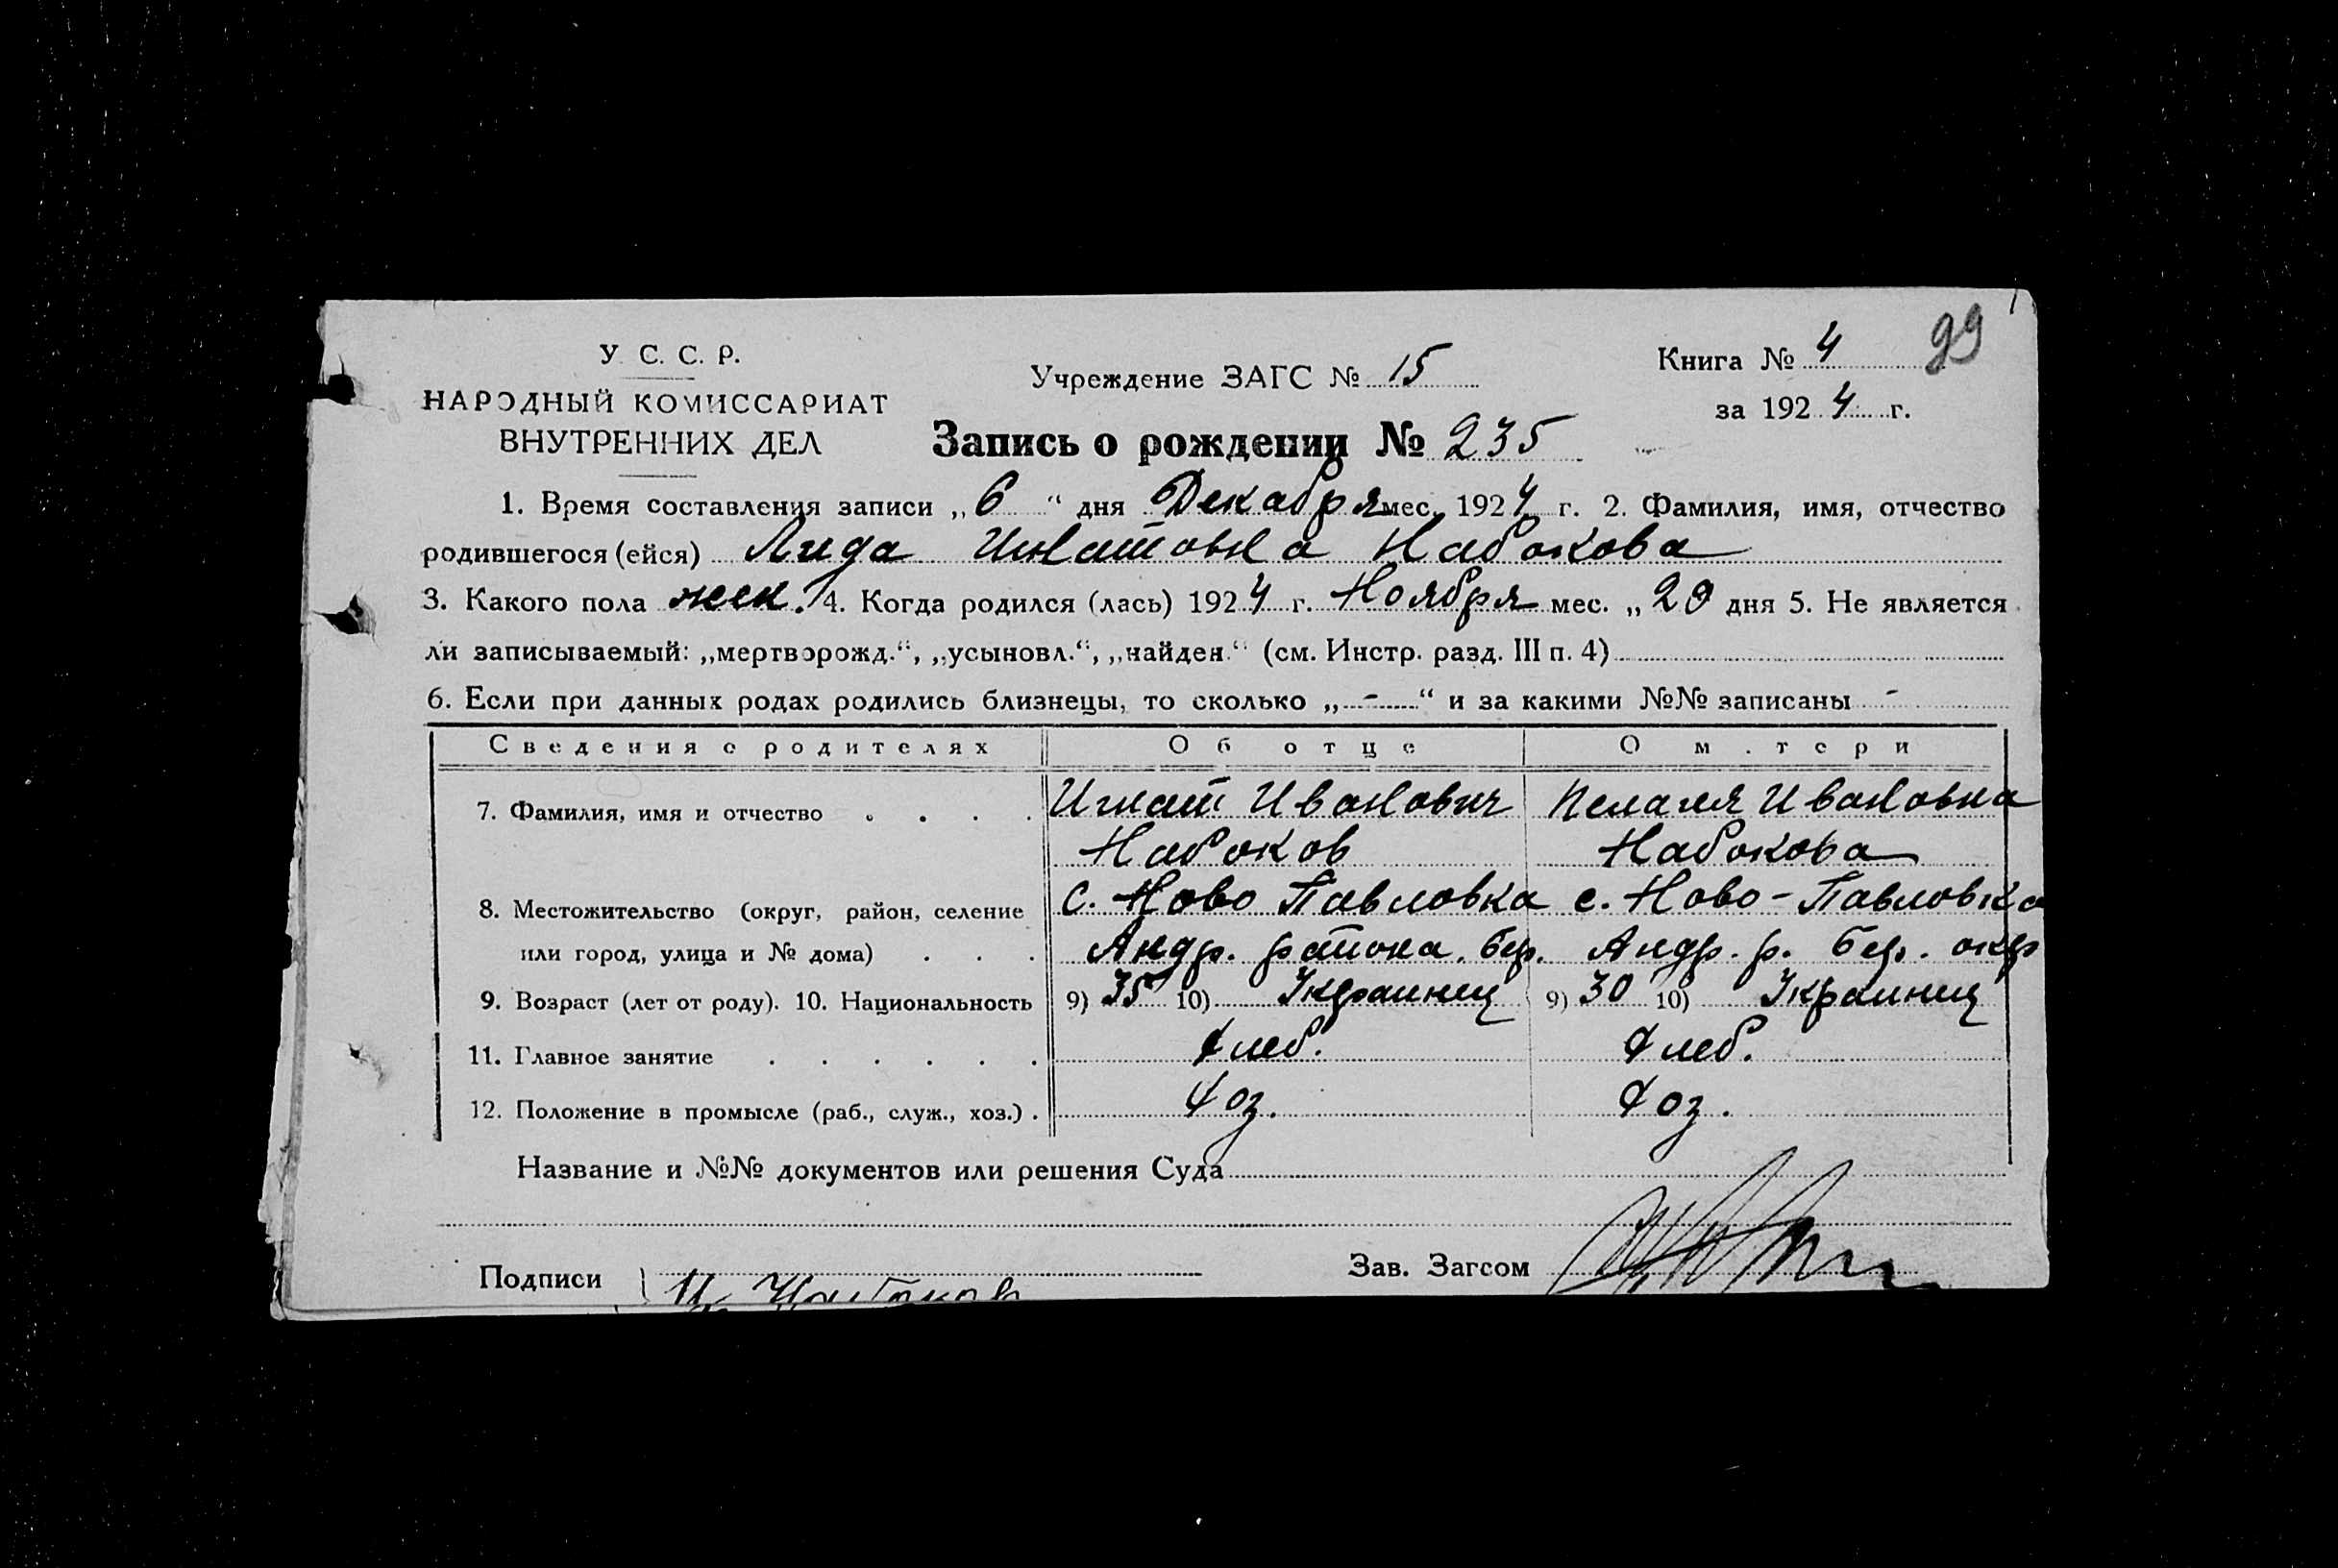 99
У. С. С. Р.
НАРОДНЫЙ КОМИССАРИАТ
ВНУТРЕННИХ ДЕЛ
Учреждение ЗАГС № 15
Книга № 4
за 1924 г.
Запись о рождении № 235
1. Время составления записи „6“ дня Декабря мес. 1924 г. 2. Фамилия, имя, отчество
родившегося (ейся) Лида Игнатовна Набокова
3. Какого пола жен. 4. Когда родился (лась) 1924 г. Ноября мес. „29 дня 5. Не является
ли записываемый: „мертворожд.“, „усыновл.“, „найден.“ (см. Инстр. разд. III п. 4)
6. Если при данных родах родились близнецы, то сколько „-“ и за какими №№ записаны -
Сведения о родителях Об отце О матери
7. Фамилия, имя и отчество . . . . Игнат Иванович Пелагея Ивановна
Набоков Набокова
8. Местожительство (округ, район, селение С. Ново Павловка с. Ново-Павловка
или город, улица и № дома) . . . Андр. района. бер. Андр. р. бер. окр
9. Возраст (лет от роду). 10. Национальность 9) 35 10) Украинец 9) 30 10) Украинец
11. Главное занятие . . . . . . Хлеб. Хлеб.
12. Положение в промысле (раб., служ., хоз.) . Хоз. Хоз.
Название и №№ документов или решения Суда
Подписи И. Набоков Зав. Загсом